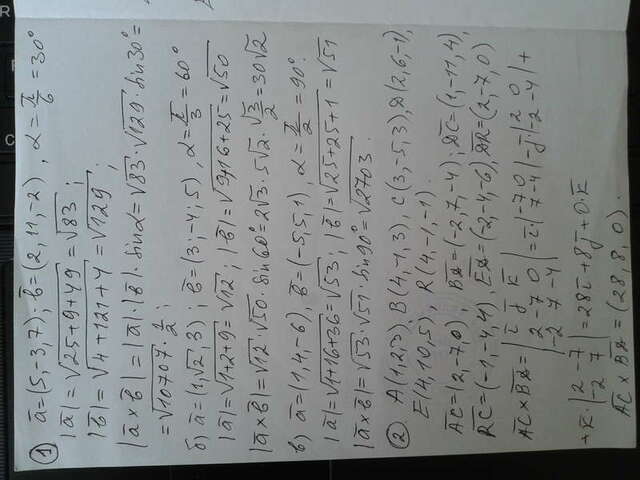 ① a̅ = (5, -3, 7); b̅ = (2, 11, -2), α = π/6 = 30°
|a̅| = √25+9+49 = √83;
|b̅| = √4+121+4 = √129;
|a̅ × b̅| = |a̅| · |b̅| · sin α = √83 · √129 · sin 30° =
= √10707 · 1/2;
б) a̅ = (1, √2, 3); b̅ = (3; -4, 5), α = π/3 = 60°
|a̅| = √1+2+9 = √12; |b̅| = √9+16+25 = √50
|a̅ × b̅| = √12 · √50 · sin 60° = 2√3 · 5√2 · √3/2 = 30√2
в) a̅ = (1, 4, -6), b̅ = (-5, 5, 1), α = π/2 = 90°.
|a̅| = √1+16+36 = √53; |b̅| = √25+25+1 = √51
|a̅ × b̅| = √53 · √51 · sin 90° = √2703.
② A(1, 2, 3), B(4, -1, 3), C(3, -5, 3), D(2, 6, -1),
E(4, 10, 5), R(4, -1, -1).
A̅C̅ = (2, -7, 0); B̅D̅ = (-2, 7, -4); D̅C̅ = (1, -11, 4),
R̅C̅ = (-1, -4, 4), E̅D̅ = (-2, -4, -6), = (2, -7, 0)
A̅C̅ × B̅D̅ = | i̅ j̅ k̅ ; 2 -7 0 ; -2 7 -4 | = i̅ | -7 0 ; 7 -4 | - j̅ | 2 0 ; -2 -4 | +
+ k̅ | 2 -7 ; -2 7 | = 28i̅ + 8j̅ + 0k̅
A̅C̅ × B̅D̅ = (28, 8, 0).